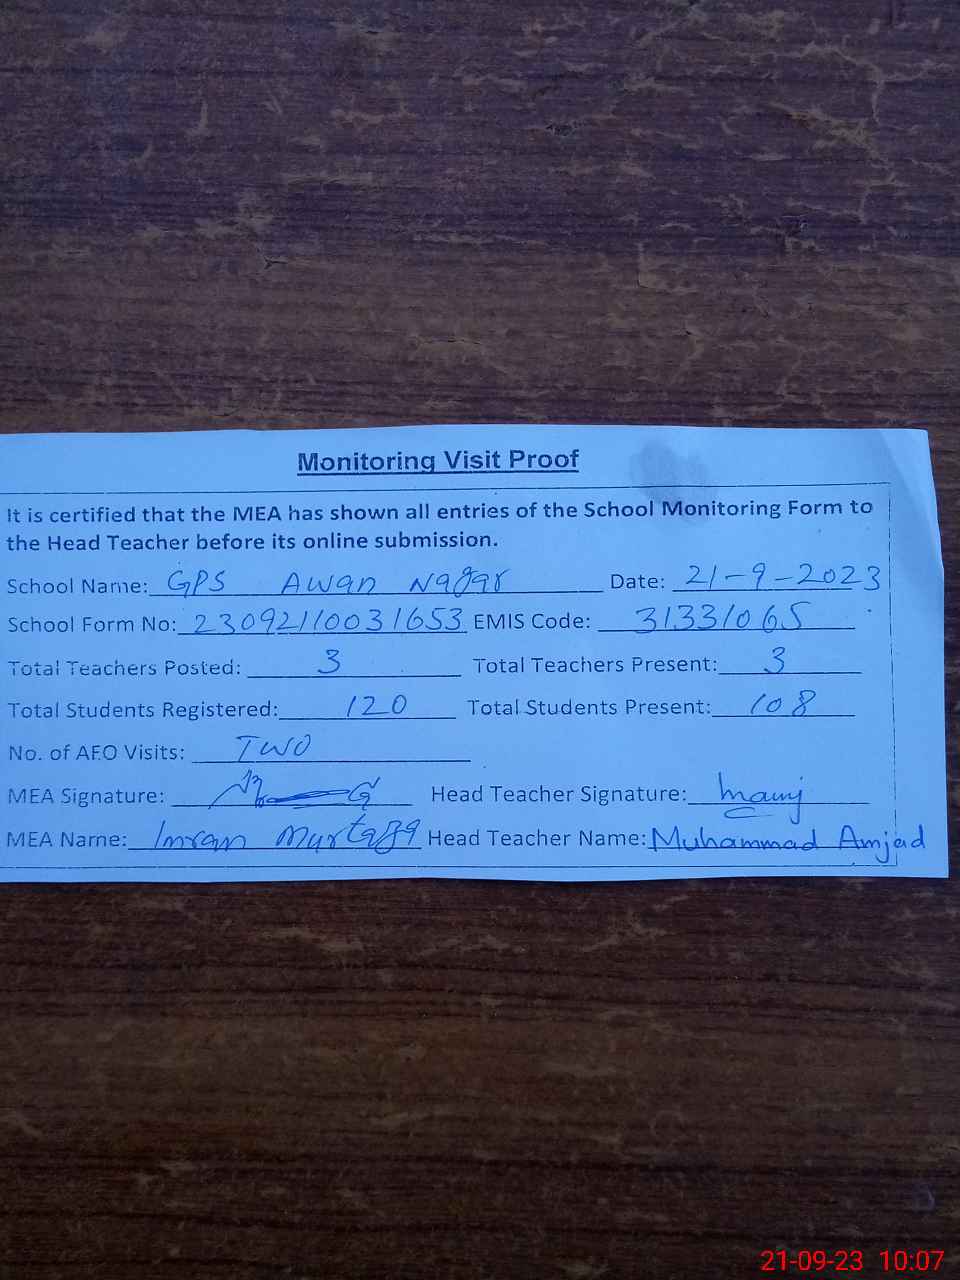 Monitoring Visit Proof
It is certified that the MEA has shown all entries of the School Monitoring Form to
the Head Teacher before its online submission.
School Name: GPS Awan Nagar Date: 21-9-2023
School Form No: 23092110031653 EMIS Code: 31331065
Total Teachers Posted: 3 Total Teachers Present: 3
Total Students Registered: 120 Total Students Present: 108
No. of AEO Visits: TWO
MEA Signature: Head Teacher Signature:
MEA Name: Imran Murtaza Head Teacher Name: Muhammad Amjad
21-09-23 10:07